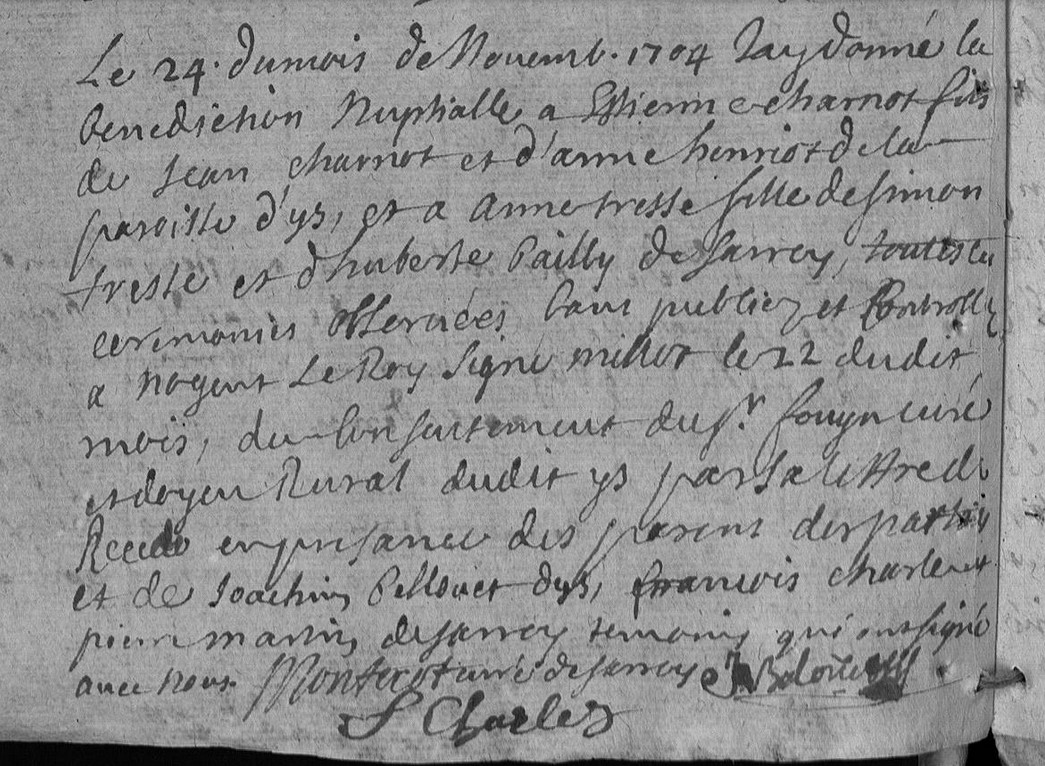 Le 24. dumois de Novemb. 1704 Jay donné la
benediction Nuptialle a Estienne charnot fils
de Jean charnot et d'anne henriot de la
paroisse d'ys, et a Anne tresse fille de simon
tresse et d'huberte bailly de sarrey, toutes les
ceremonies observées bans publiez et Controllez
a Nogent Le Roy signé millot le 22 dudit
mois, du consentement du sr. curé
et doyen Rural dudit ys par sa lettre de
Recedo en presance des parens des parties
et de Joachim d'ys, francois charle et
pierre martin de sarrey temoins qui ont signé
avec nous. curé de sarrey
F Charles